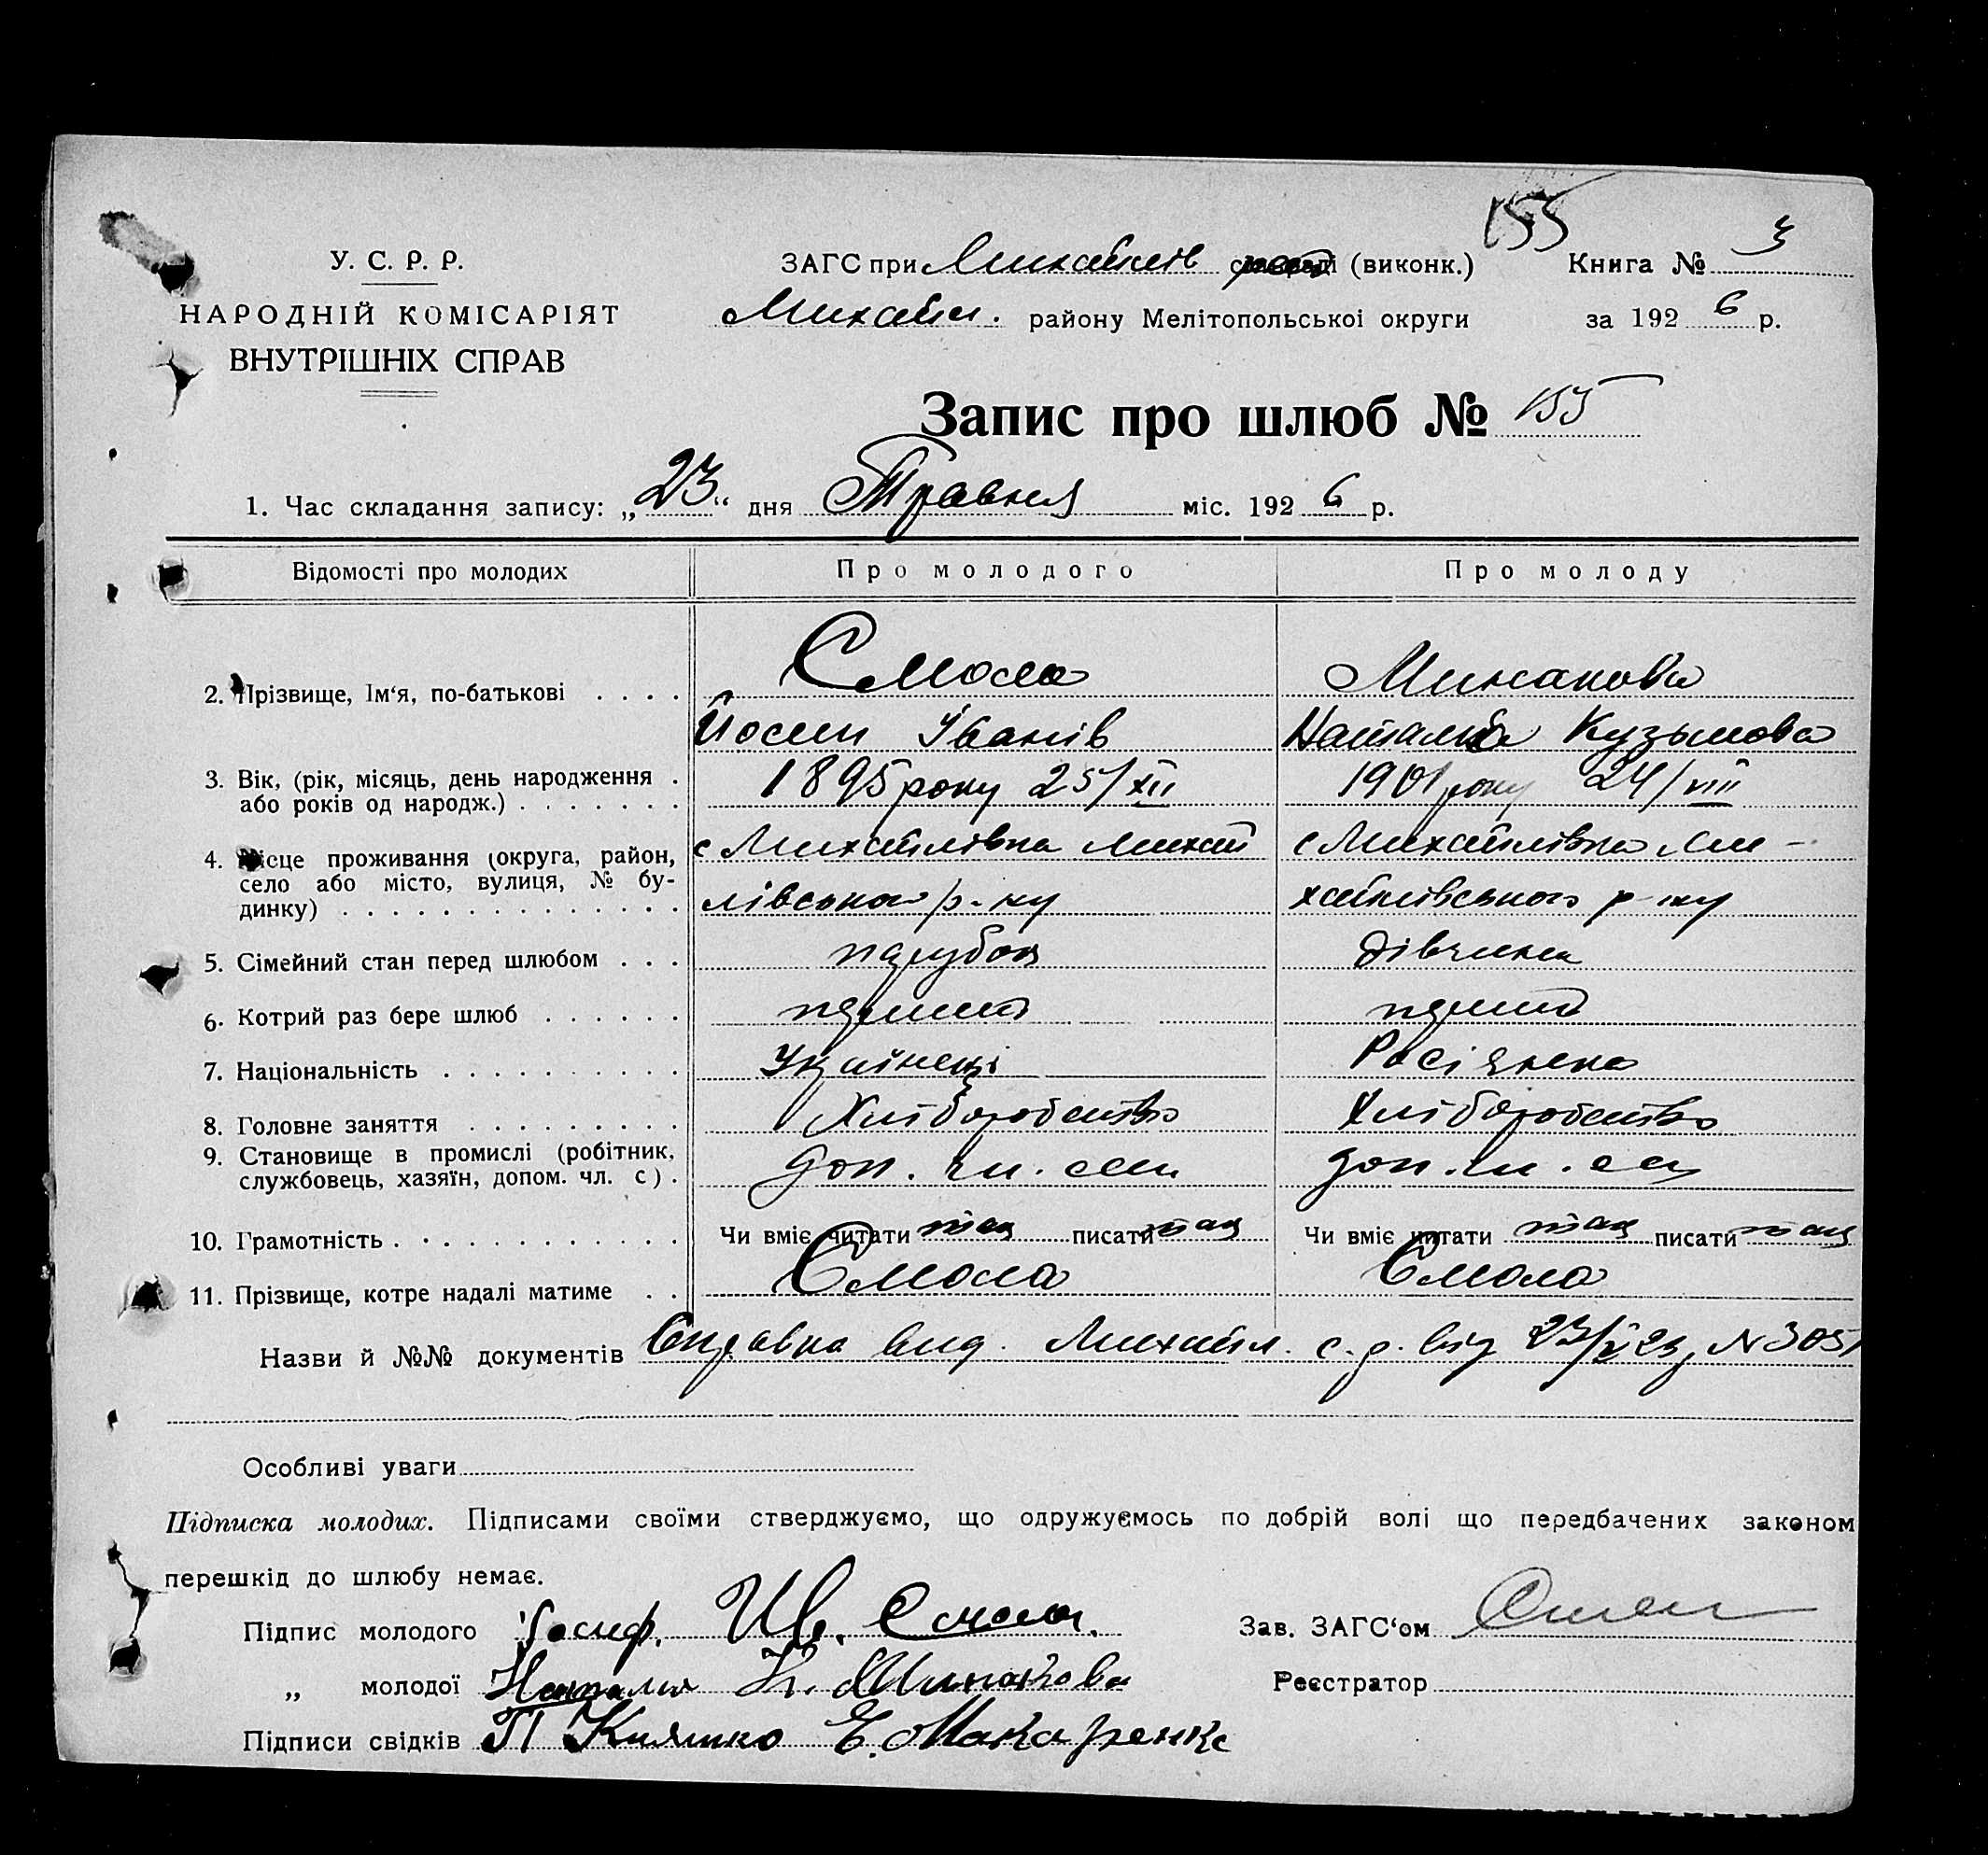 155
У. С. Р. Р.
ЗАГС при Михайлів (виконк.) Книга № 3
НАРОДНІЙ КОМІСАРІЯТ
Михайл. району Мелітопольської округи за 1926 р.
ВНУТРІШНІХ СПРАВ
Запис про шлюб № 155
1. Час складання запису: „23“ дня Травня міс. 1926 р.
Відомості про молодих Про молодого Про молоду
2. Прізвище, Ім‘я, по-батькові . . . . Смола Минакова
Йосип Іванів Наталія Кузьмова
3. Вік, (рік, місяць, день народження . 1895 року 25/XII 1901 року 24/VIII
або років од народж.) . . . . . . .
4. Місце проживання (округа, район, с Михайлівка Михай с Михайлівка Ми-
село або місто, вулиця, № бу-
динку) . . . . . . . . . . . . . . лівського р-ну хайлівського р-ну
5. Сімейний стан перед шлюбом . . . парубок дівчина
6. Котрий раз бере шлюб . . . . . . перший перший
7. Національність . . . . . . . . . . Українець Росіянка
8. Головне заняття . . . . . . . . . Хліборобство Хліборобство
9. Становище в промислі (робітник, доп. чл. сем доп. чл. сем
службовець, хазяїн, допом. чл. с) .
10. Грамотність . . . . . . . . . . . . Чи вміє читати так писати так Чи вміє читати так писати так
11. Прізвище, котре надалі матиме . . Смола Смола
Назви й №№ документів Справка вид. Михайл. с.р. від 23/V № 3051
Особливі уваги
Підписка молодих. Підписами своїми стверджуємо, що одружуємось по добрій волі що передбачених законом
перешкід до шлюбу немає.
Підпис молодого Иосиф. Ив. Смола. Зав. ЗАГС‘ом
„ молодої Наталия К. Минакова Реєстратор
Підписи свідків П Кияшко Е. Макаренко